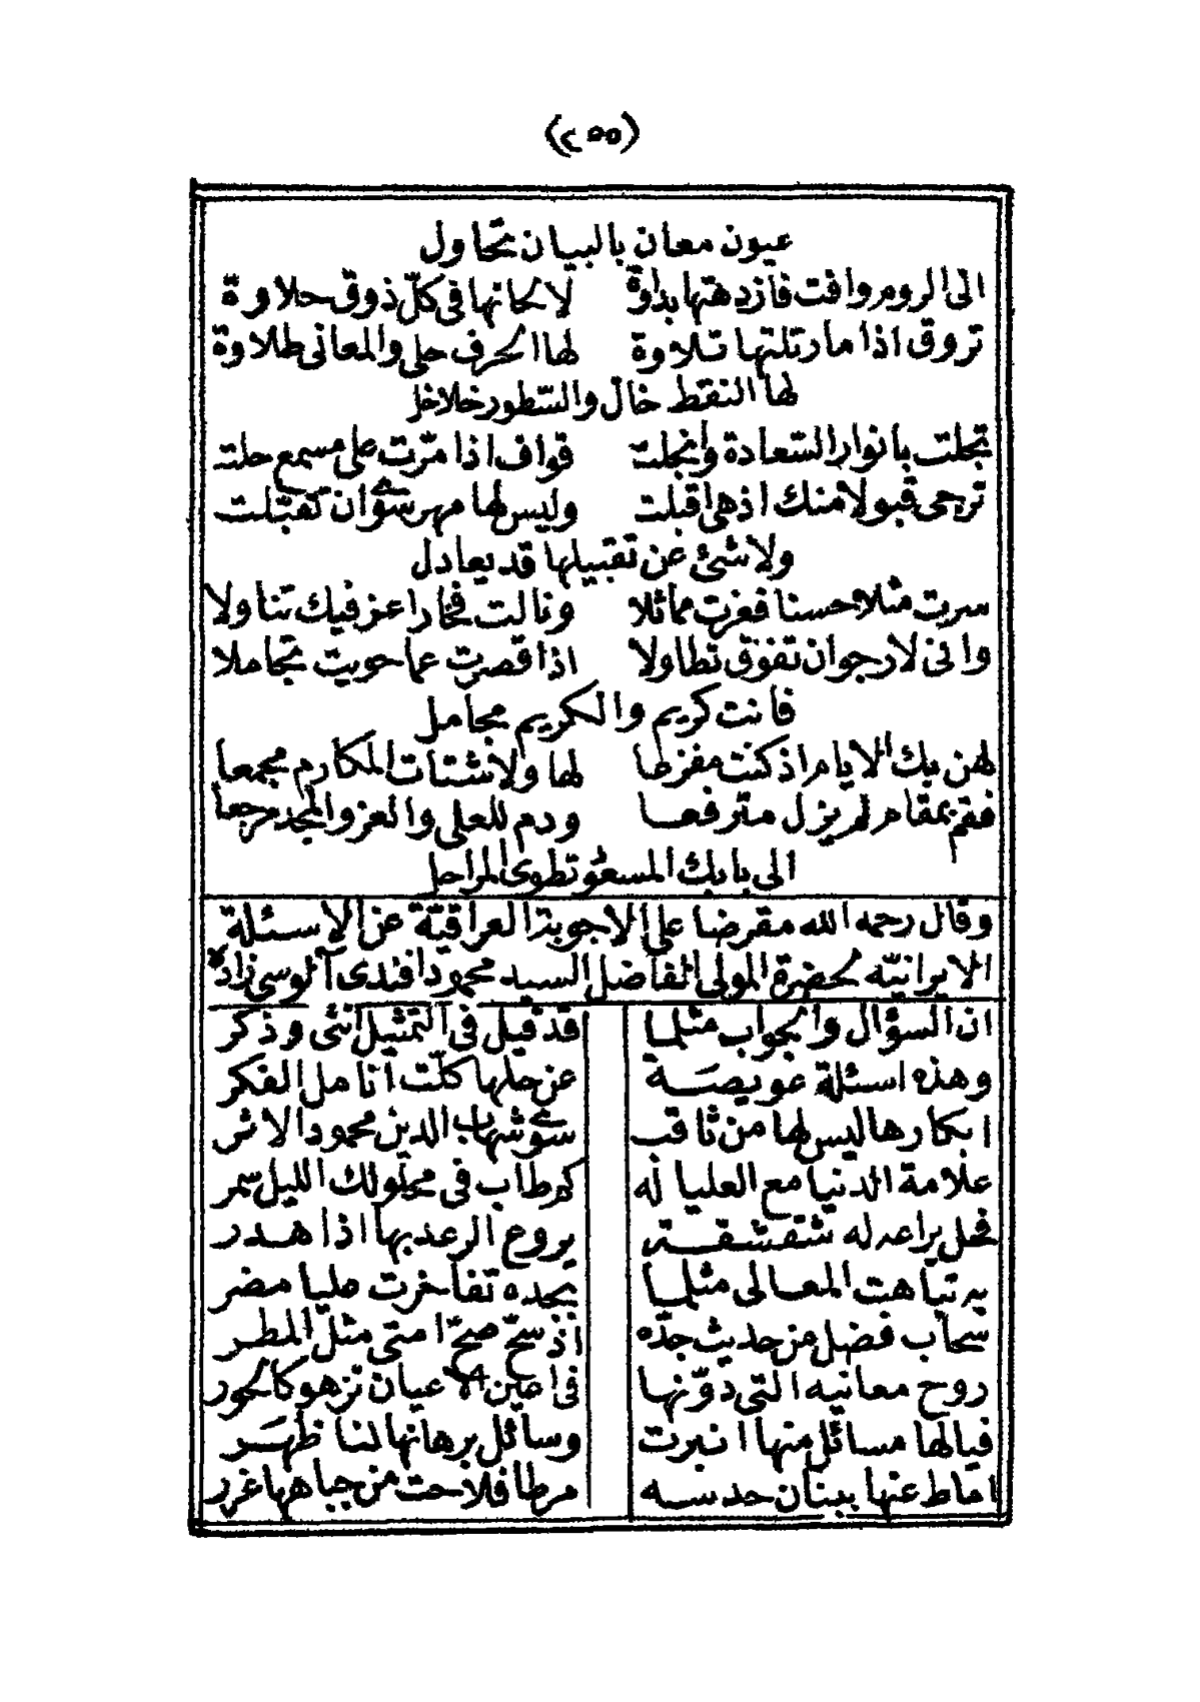 (٢٥٥)
عيون معان بالبيان تحاول
الى الروم وافت فازدهتها بداوة لالحانها فى كلّ ذوق حلاوة
تروق اذا ما رتلتها تلاوة لها الحرف حلى والمعانى طلاوة
لها النقط خال والسّطور خلاخل
تجلت بانوار السّعادة وانجلت قواف اذا مرّت على مسمع حلت
ترجى قبولا منك اذ هى اقبلت وليس لها مهر سوى ان تقبّلت
ولا شئ عن تقبيلها قد يعادل
سرت مثلا حسنا فعزت مماثلا ونالت فخارا عز فيك تناولا
وانى لارجو ان تفوق تطاولا اذا قصرت عما حويت تجاملا
فانت كريم والكريم مجامل
لهن بك الايام اذ كنت مفزعا لها ولاشتات المكارم مجمعا
فقم بمقام لم يزل مترفعا ودم للعلى والعز والمجد مرجعا
الى بابك المسعود تطوى المراحل
وقال رحمه الله مقرضا على الاجوبة العراقيّة عن الاسئلة
الايرانيّه لحضرة المولى الفاضل السيد محمود افندى آلوسى زاده
ان السؤال والجواب مثلما قد قيل فى التمثيل انثى وذكر
وهذه اسئلة عويصة عن حلها كلّت انامل الفكر
ابكارها ليس لها من ثاقب سوى شهاب الدين محمود الاثر
علامة الدنيا مع العليا له كم طاب فى محلولك الليل سمر
فحل يراعه له شقشقة يروع الرعد بها اذا هدر
به تباهت المعالى مثلما بجده تفاخرت عليا مضر
سحاب فضل من حديث جدّه اذ سحّ صحّ امتى مثل المطر
روح معانيه التى دوّنها فى اعين الاعيان تزهو كالحور
فيالها مسائل منها انبرت وسائل برهانها لنا ظهر
اماط عنها ببنان حدسه مرطا فلاحت من جباهها غرر